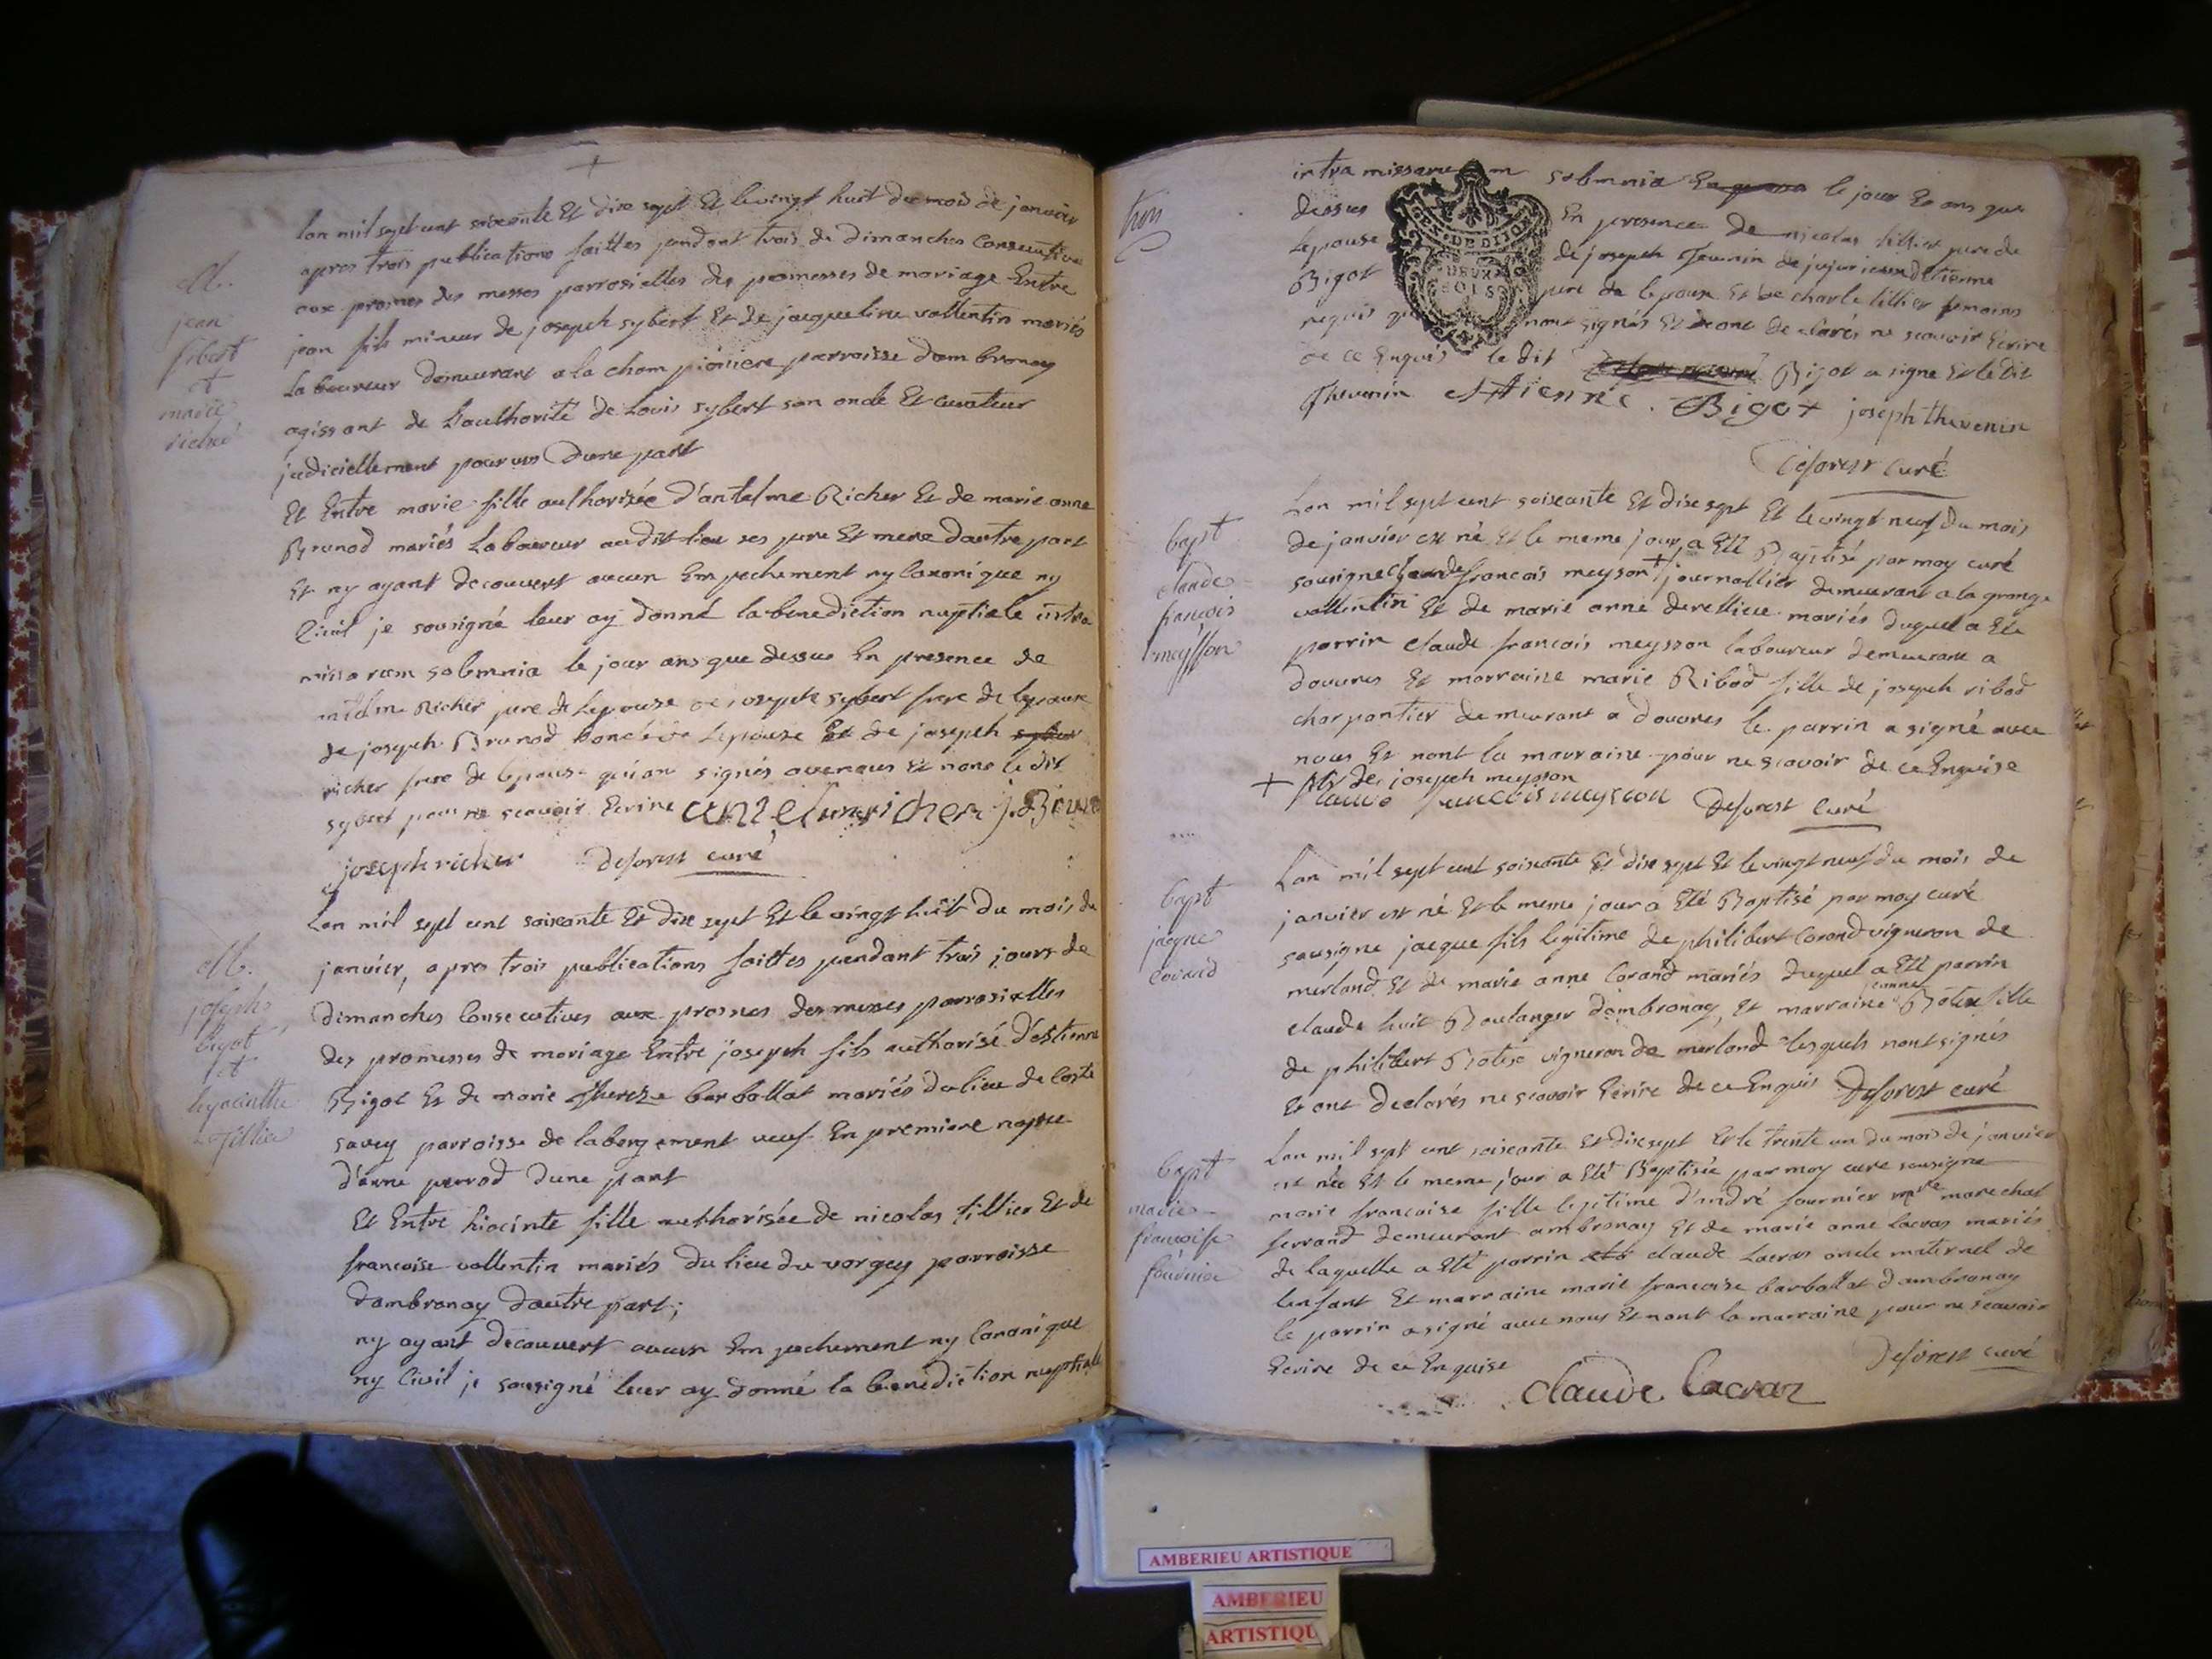 M.
jean
sibert
et
marie
richer
lan mil sept cent soixante Et dix sept Et le vingt huit du mois de janvier
apres trois publications faittes pendant trois de dimanches Consecutive
aux prones des messes parrosielles des promesses de mariage Entre
jean fils mineur de joseph sybert Et de jacqueline vallentin mariés
laboureur demeurant a la championiere parroisse dambronay
agissant de Lauthorité de Louis sybert son oncle Et curateur
judiciellement pourvus Dune part
Et Entre marie fille authorisée d'antelme Richer Et de marie anne
Brunod mariés laboureur au dit lieu ses pere Et mere dautre part
Et ny ayant decouvert aucun Empechement ny Canonique ny
Civil je sousigné leur ay donné la benediction nuptiale intra
missarum solemnia le jour ans que dessus En presence de
Richer pere de Lepouse de joseph sybert frere de lepoux
de joseph Brunod Lepouse Et de joseph sybert
richer frere de lepouse qui on signés avec nous Et nont le dit
sybert pour ne scavoir Ecrire antelme richer j. Brun
joseph richer Deforest curé
M.
joseph
bigot
et
hyacinthe
tillier
Lan mil sept cent soixante Et dix sept Et le vingt huit du mois de
janvier, apres trois publications faittes pendant trois jours de
Dimanches Consecutives aux prosnes des messes parrosielles
des promesses de mariage Entre joseph fils authorisé d'Estienne
Bigot Et de marie therese barballat mariés du lieu de Coste
savey parroisse de labergement veuf En premiere nopce
d'anne perrod Dune part
Et Entre hiacinte fille authorisée de nicolas tillier Et de
francoise vallentin mariés du lieu du vorgey parroisse
Dambronay Dautre part;
ny ayant decouvert aucun Empechement ny Canonique
ny Civil je sousigné leur ay donné la benediction nuptiale
trois
intra missarum solemnia le jour Et ans que
dessus En presence de nicolas tillier pere de
Lepouse de joseph Thevenin de jujurieux Detienne
Bigot pere de lepoux Et de charle tillier temoins
requis nont signés Et ont declarés ne scavoir Ecrire
de ce Enquis le dit Bigot a signe Et le dit
Thevenin Attienne. Bigot joseph thevenin
Deforest curé
bapt
claude
françois
meysson
Lan mil sept cent soixante Et dix sept Et le vingt neuf du mois
de janvier est né Et le meme jour a Eté Baptisé par moy curé
sousigne Claude francois meyson + journallier demeurant a la grange
vallentin Et de marie anne derellieu mariés duquel a Ete
parrin Claude francois meysson laboureur demeurant a
douvres Et marraine marie Ribod fille de joseph ribod
charpantier demeurant a douvres le parrin a signé avec
nous Et nont la marraine pour ne scavoir de ce Enquise
+ fils de joseph meysson
claude francois meysson Deforest Curé
bapt
jacque
corand
Lan mil sept cent soixante Et dix sept Et le vingt neuf du mois de
janvier est né Et le meme jour a Eté Baptisé par moy curé
sousigne jacque fils legitime de philibert Corand vigneron de
merland Et de marie anne Corand mariés duquel a Eté parrin
claude huit Boulanger dambronay, Et marraine jeanne Botex fille
de philibert Botex vigneron de merland lesquels nont signés
Et ont declarés ne scavoir Ecrire de ce Enquis Deforest curé
bapt
marie
françoise
fournier
Lan mil sept cent soixante Et dix sept Et le trente un du mois de janvier
est née Et le meme jour a Eté Baptisée par moy curé sousigne
marie francoise fille legitime d'andré fournier me marechal
ferrand demeurant ambronay Et de marie anne lacras mariés
de laquelle a Eté parrin claude Lacras oncle maternel de
lenfant Et marraine marie francoise barballat dambronay
le parrin a signé avec nous Et nont la marraine pour ne scavoir
Ecrire de ce Enquise Deforest curé
claude lacraz
AMBERIEU ARTISTIQUE
AMBERIEU
ARTISTIQU